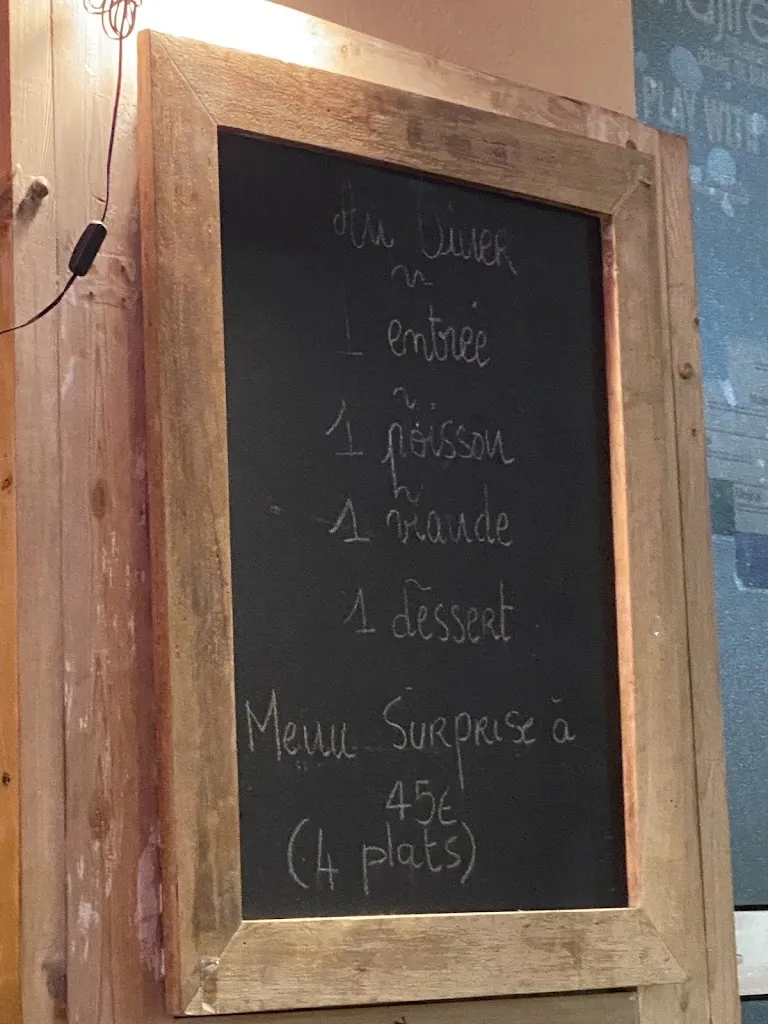 Au Diner
~
1 entrée
~
1 poisson
~
1 viande
1 dessert
Menu SURPRISE à
45€
(4 plats)
PLAY WITH